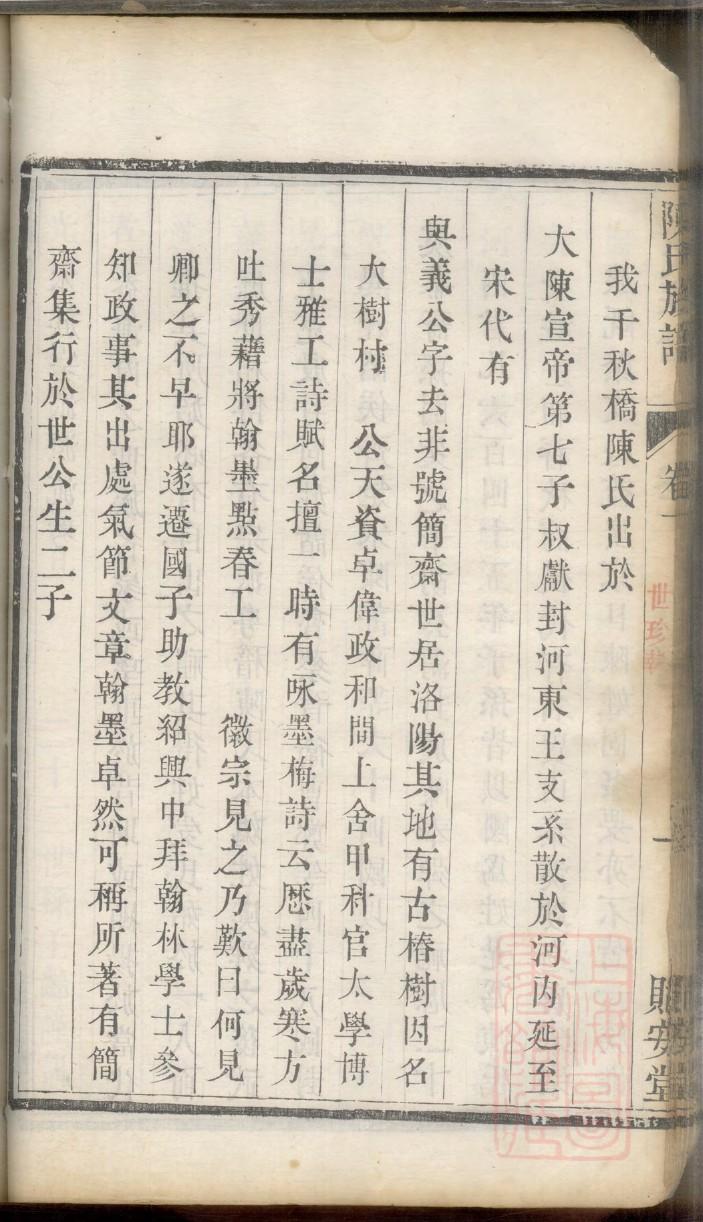 陳氏族譜
卷一
世珍藏
一
貽安堂
我千秋橋陳氏出於
大陳宣帝第七子叔獻封河東王支系散於河内延至
宋代有
與義公字去非號簡齋世居洛陽其地有古椿樹因名
大樹村 公天資卓偉政和間上舍甲科官太學博
士雅工詩賦名擅一時有咏墨梅詩云歷盡歲寒方
吐秀藉將翰墨點春工 徽宗見之乃歎曰何見
卿之不早耶遂遷國子助教紹興中拜翰林學士參
知政事其出處氣節文章翰墨卓然可稱所著有簡
齋集行於世公生二子